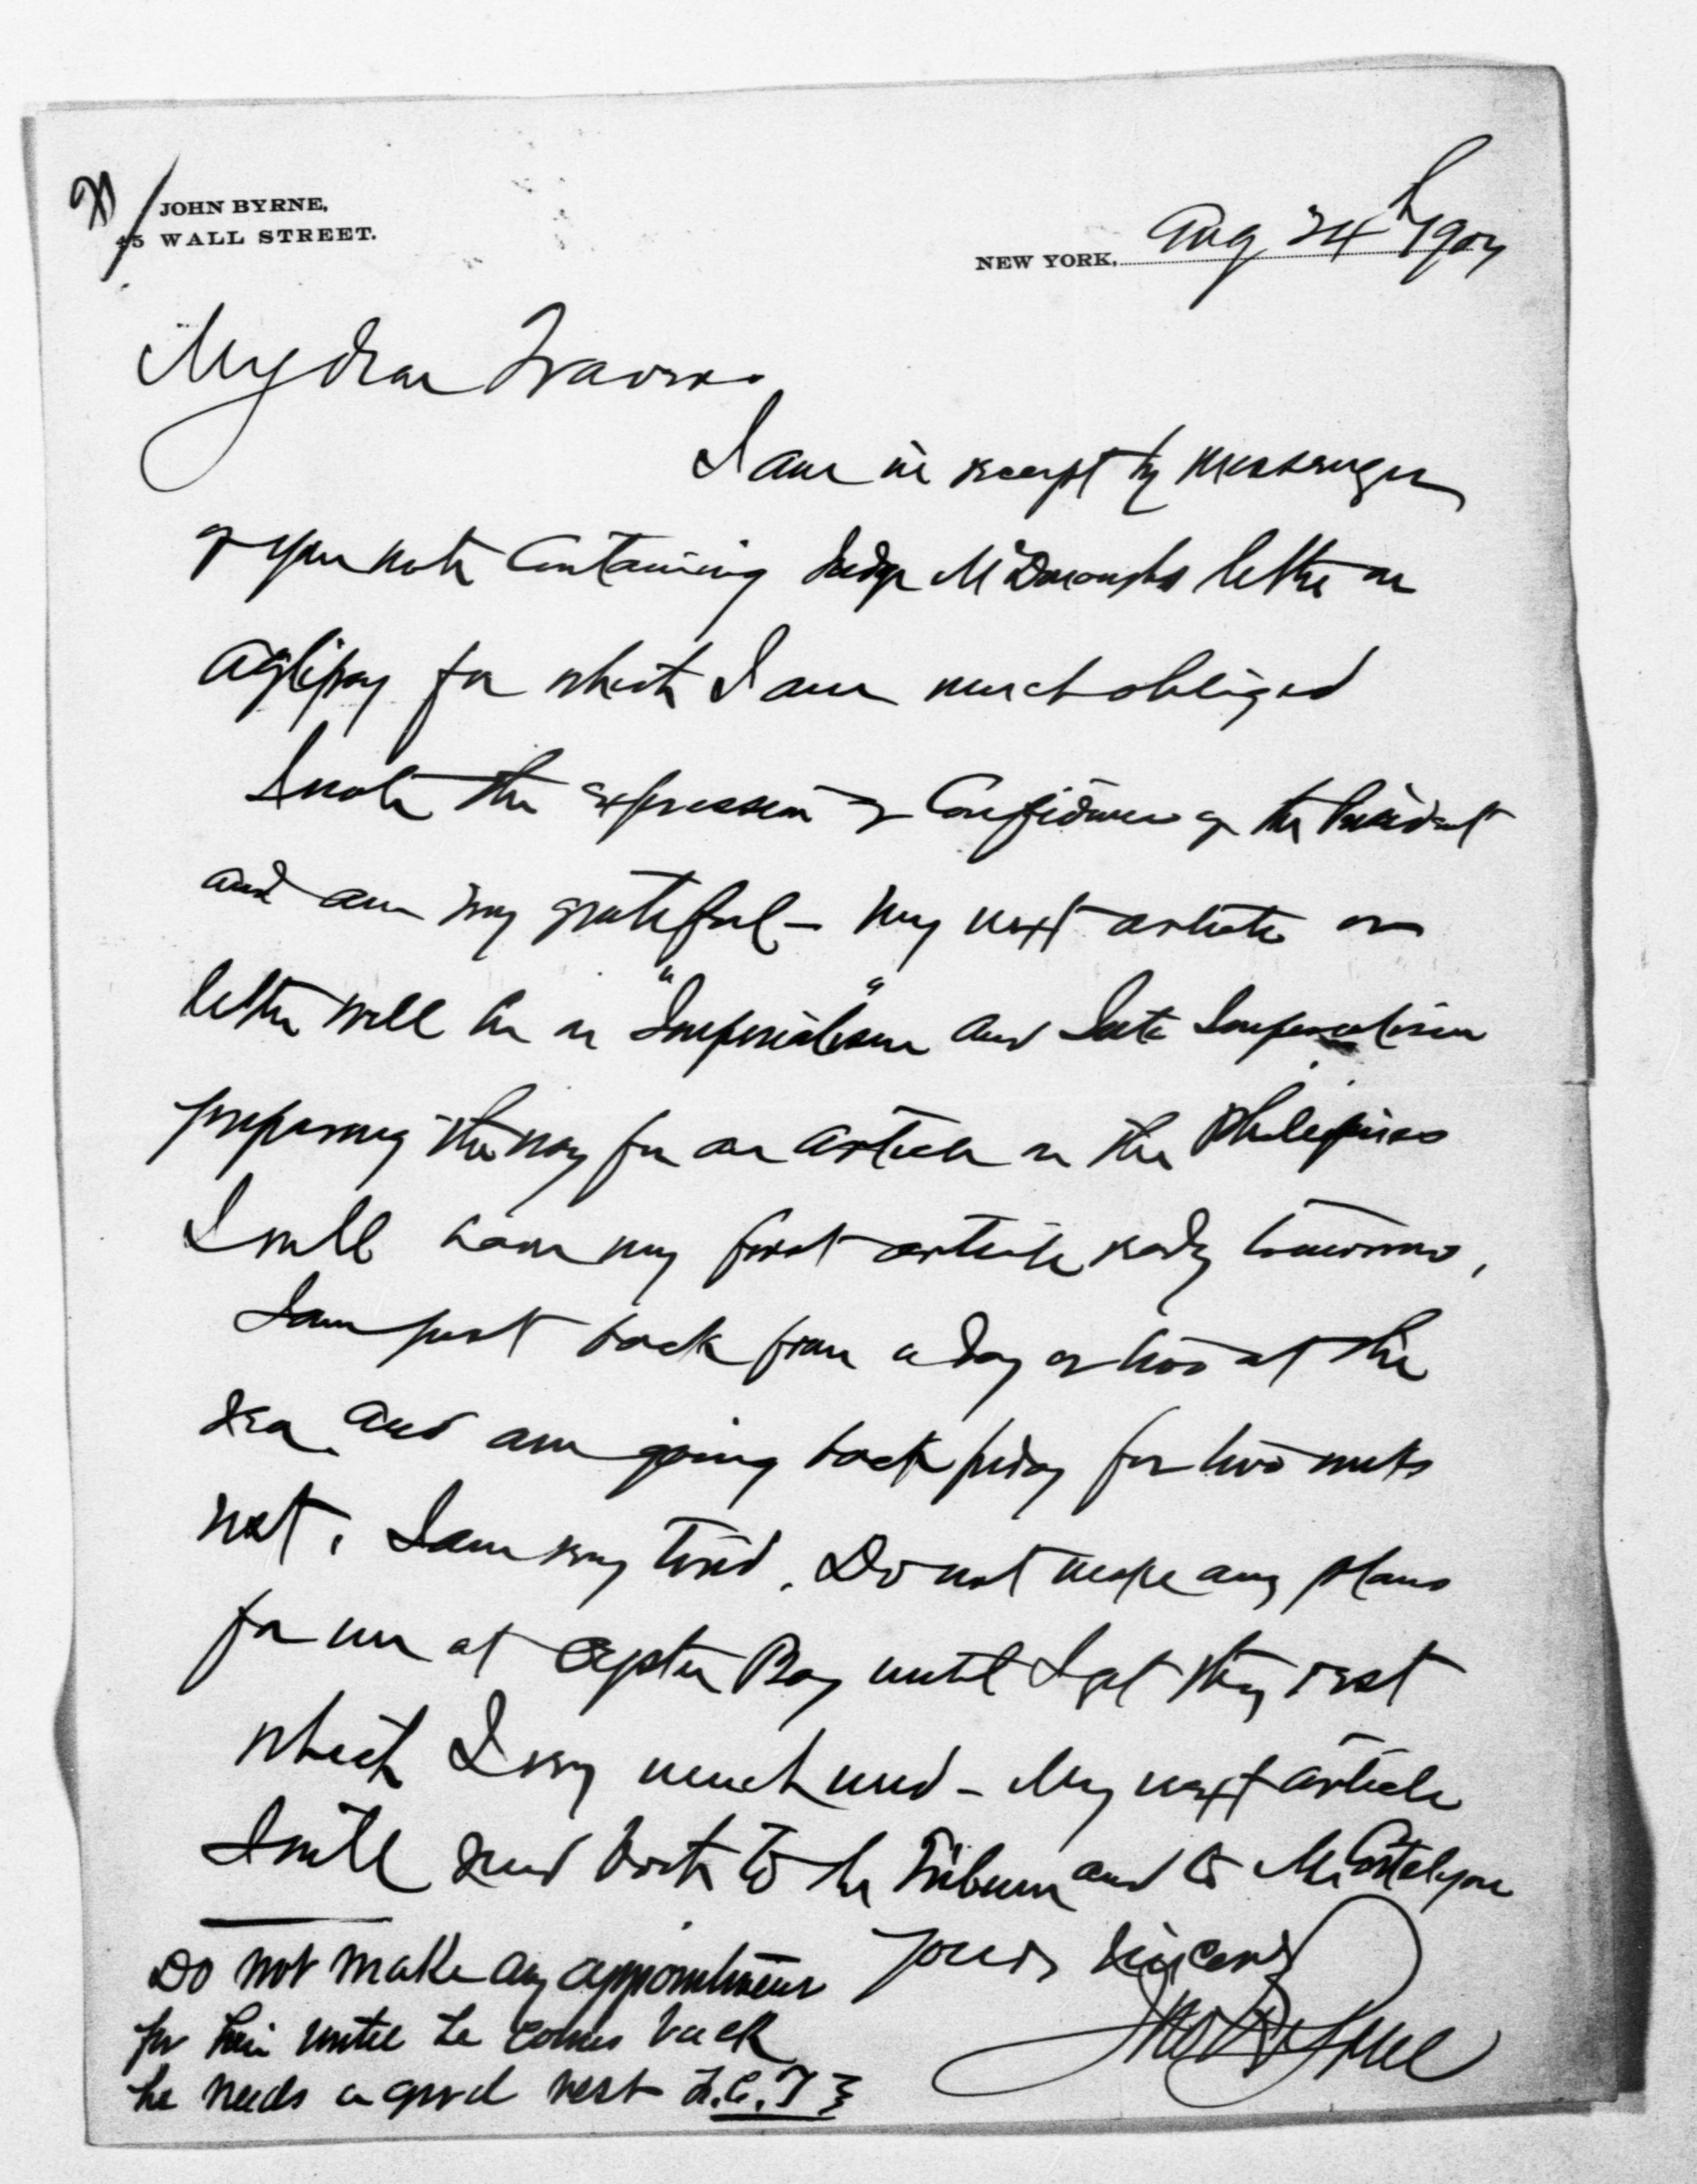 JOHN BYRNE,
45 WALL STREET.
NEW YORK, Aug 24th 1904
My dear Travers.
I am in receipt by messenger
of your note containing Judge McDonoughs letter on
Aglipay for which I am much obliged
I note the expression of Confidence of the President
and am very grateful - My next article or
letter will be on "Imperialism" and
preparing the way for an article on the Philipines
I will have my first article ready tomorrow,
I am just back from a day or two at the
sea. and am going back friday for two weeks
rest. I am very tired. Do not make any plans
for me at Oyster Bay until I get this rest
which I very much need - My next article
I will send both to the Tribune and to Mr Cortelyou
Yours Sincerely
Jno Byrne
Do not make any appointments
for him until he comes back
he needs a good rest L.C.T